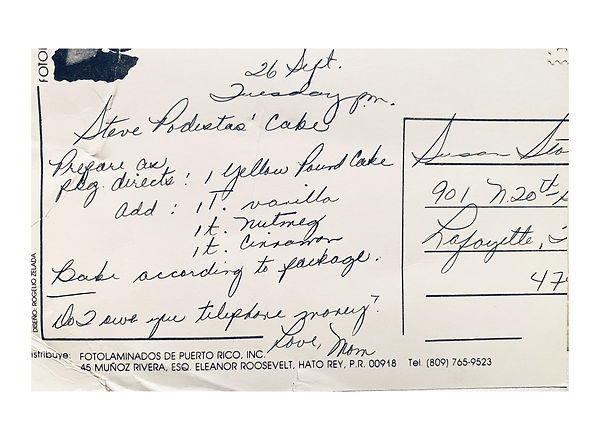 FOTOL
26 Sept.
Tuesday p.m.
Steve Podestas' Cake
Prepare as
pkg directs: 1 Yellow Pound Cake
add: 1 T. vanilla
1 t. Nutmeg
1 t. Cinnamon
Bake according to package.
Do I owe you telephone money?
Love, Mom
Susan Sto
901 N. 20th
Lafayette,
47
DISEÑO: ROGELIO ZELADA
istribuye: FOTOLAMINADOS DE PUERTO RICO, INC.
45 MUÑOZ RIVERA, ESQ. ELEANOR ROOSEVELT, HATO REY, P.R. 00918 Tel. (809) 765-9523